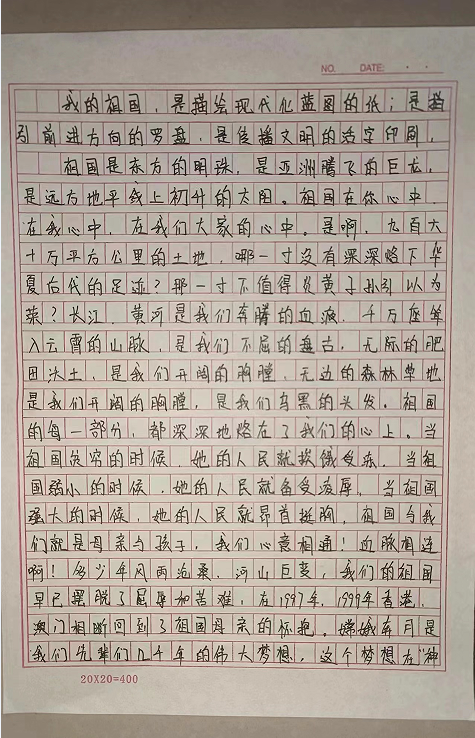 NO. DATE: · ·
我的祖国，是描绘现代化蓝图的纸；是指
引前进方向的罗盘，是传播文明的活字印刷。
祖国是东方的明珠，是亚洲腾飞的巨龙，
是远方地平线上初升的太阳。祖国在你心中，
在我心中，在我们大家的心中。是啊，九百六
十万平方公里的土地，哪一寸没有深深烙下华
夏后代的足迹？那一寸不值得炎黄子孙引以为
荣？长江、黄河是我们奔腾的血液，千万座耸
入云霄的山脉，是我们不屈的盘古，无际的肥
田沃土，是我们开阔的胸膛，无边的森林草地
是我们开阔的胸膛，是我们乌黑的头发。祖国
的每一部分，都深深地烙在了我们的心上。当
祖国贫穷的时候，她的人民就挨饿受冻，当祖
国弱小的时候，她的人民就备受凌辱，当祖国
强大的时候，她的人民就昂首挺胸。祖国与我
们就是母亲与孩子，我们心意相通！血脉相连
啊！多少年风雨沧桑，河山巨变，我们的祖国
早已摆脱了屈辱和苦难，在1997年，1999年香港、
澳门相断回到了祖国母亲的怀抱。嫦娥奔月是
我们先辈们几千年的伟大梦想，这个梦想在“神
20X20=400